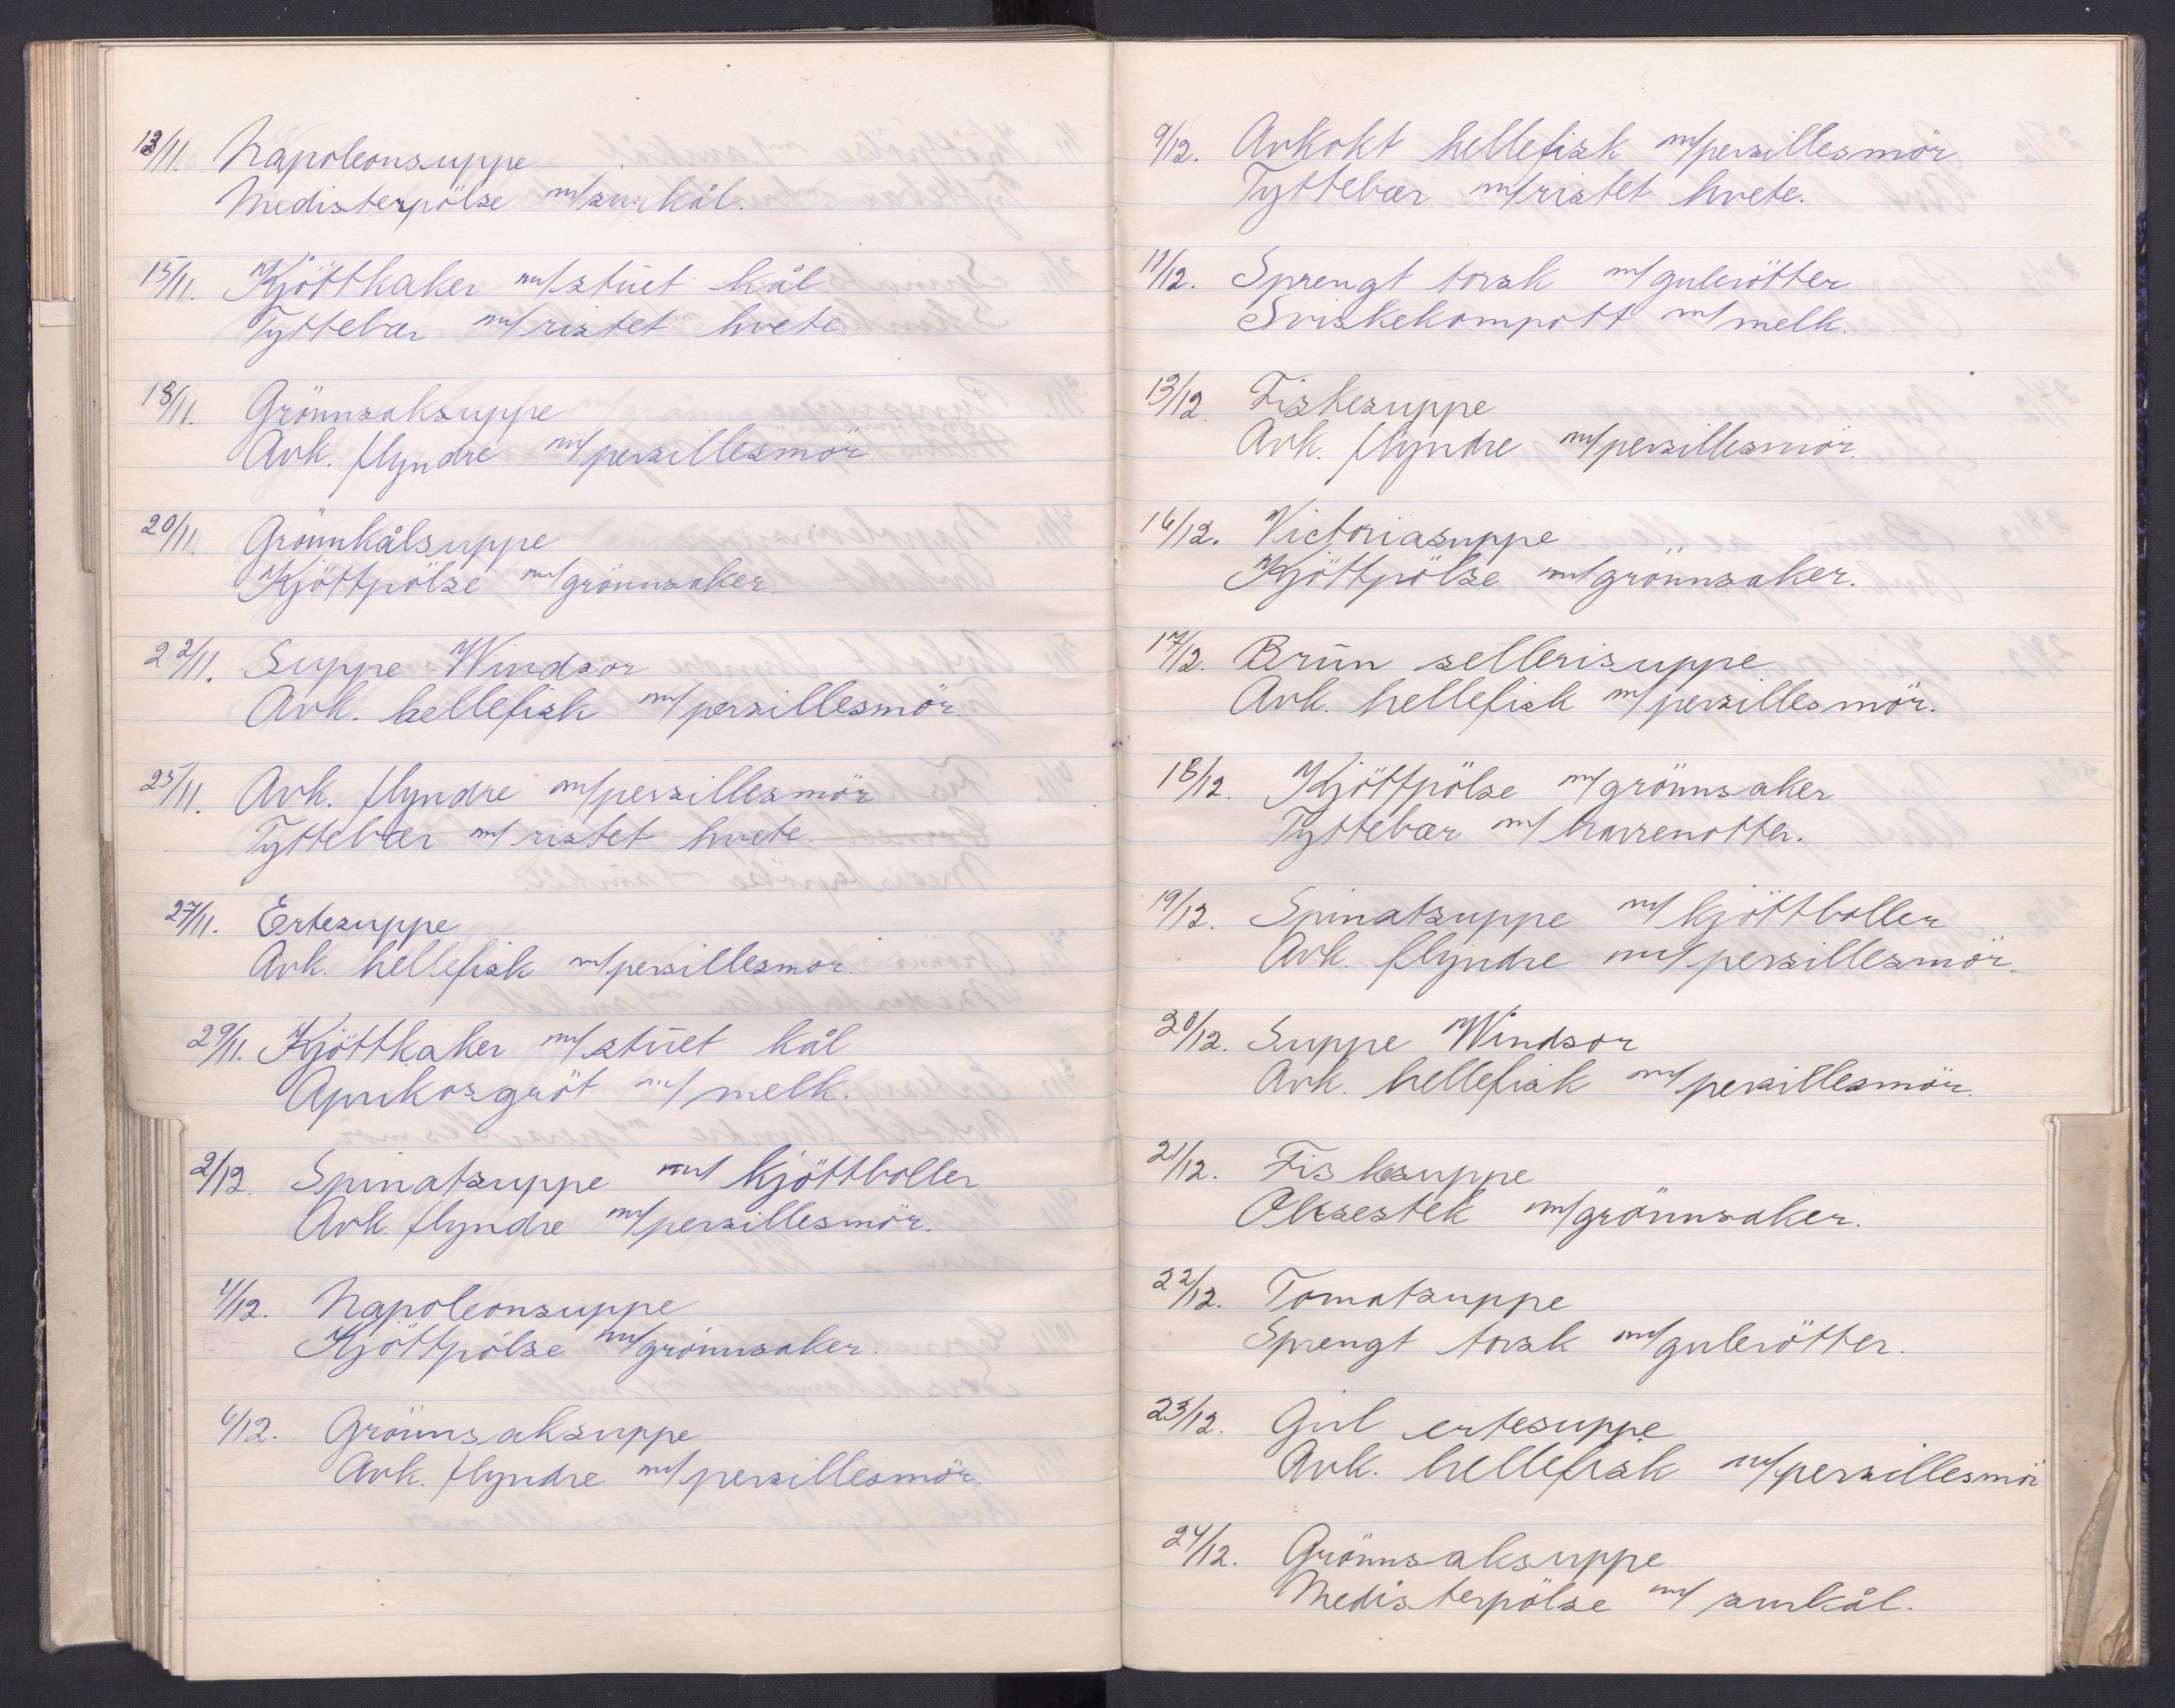 13/11. Napoleonsuppe
Medisterpölse m/surkål.
15/11. Kjöttkaker m/stuet kål
Tyttebær m/ristet hvete.
18/11. Grönnsaksuppe
Avk. flyndre m/persillesmör.
20/11. Grönnkålsuppe
Kjöttpölse m/grönnsaker.
22/11. Suppe Windsor
Avk. hellefisk m/persillesmör.
25/11. Avk. flyndre m/persillesmör
Tyttebær m/ristet hvete.
27/11. Ertesuppe
Avk. hellefisk m/persillesmör.
29/11. Kjöttkaker m/stuet kål
Aprikosgröt m/melk.
2/12. Spinatsuppe m/kjöttboller
Avk. flyndre m/persillesmör.
4/12. Napoleonsuppe
Kjöttpölse m/grönnsaker.
6/12. Grönnsaksuppe
Avk. flyndre m/persillesmör.
9/12. Avkokt hellefisk m/persillesmör
Tyttebær m/ristet hvete.
11/12. Sprengt torsk m/gulerötter
Sviskekompott m/melk.
13/12. Fiskesuppe
Avk. flyndre m/persillesmör.
16/12. Victoriasuppe
Kjöttpölse m/grönnsaker.
17/12. Brun sellerisuppe
Avk. hellefisk m/persillesmör.
18/12. Kjöttpölse m/grönnsaker
Tyttebær m/havrenötter.
19/12. Spinatsuppe m/kjöttboller
Avk. flyndre m/persillesmör.
20/12. Suppe Windsor
Avk. hellefisk m/persillesmör.
21/12. Fiskesuppe
Oksestek m/grönnsaker.
22/12. Tomatsuppe
Sprengt torsk m/gulerötter.
23/12. Gul ertesuppe
Avk. hellefisk m/persillesmör
24/12. Grönnsaksuppe
Medisterpölse m/surkål.